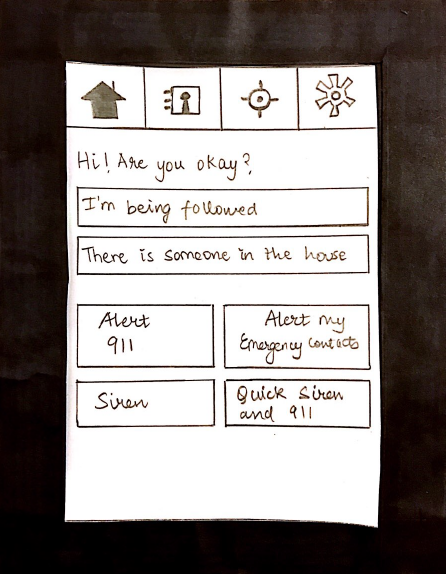 Hi! Are you okay?
I'm being followed
There is someone in the house
Alert
911
Alert my
Emergency contacts
Siren
Quick Siren
and 911